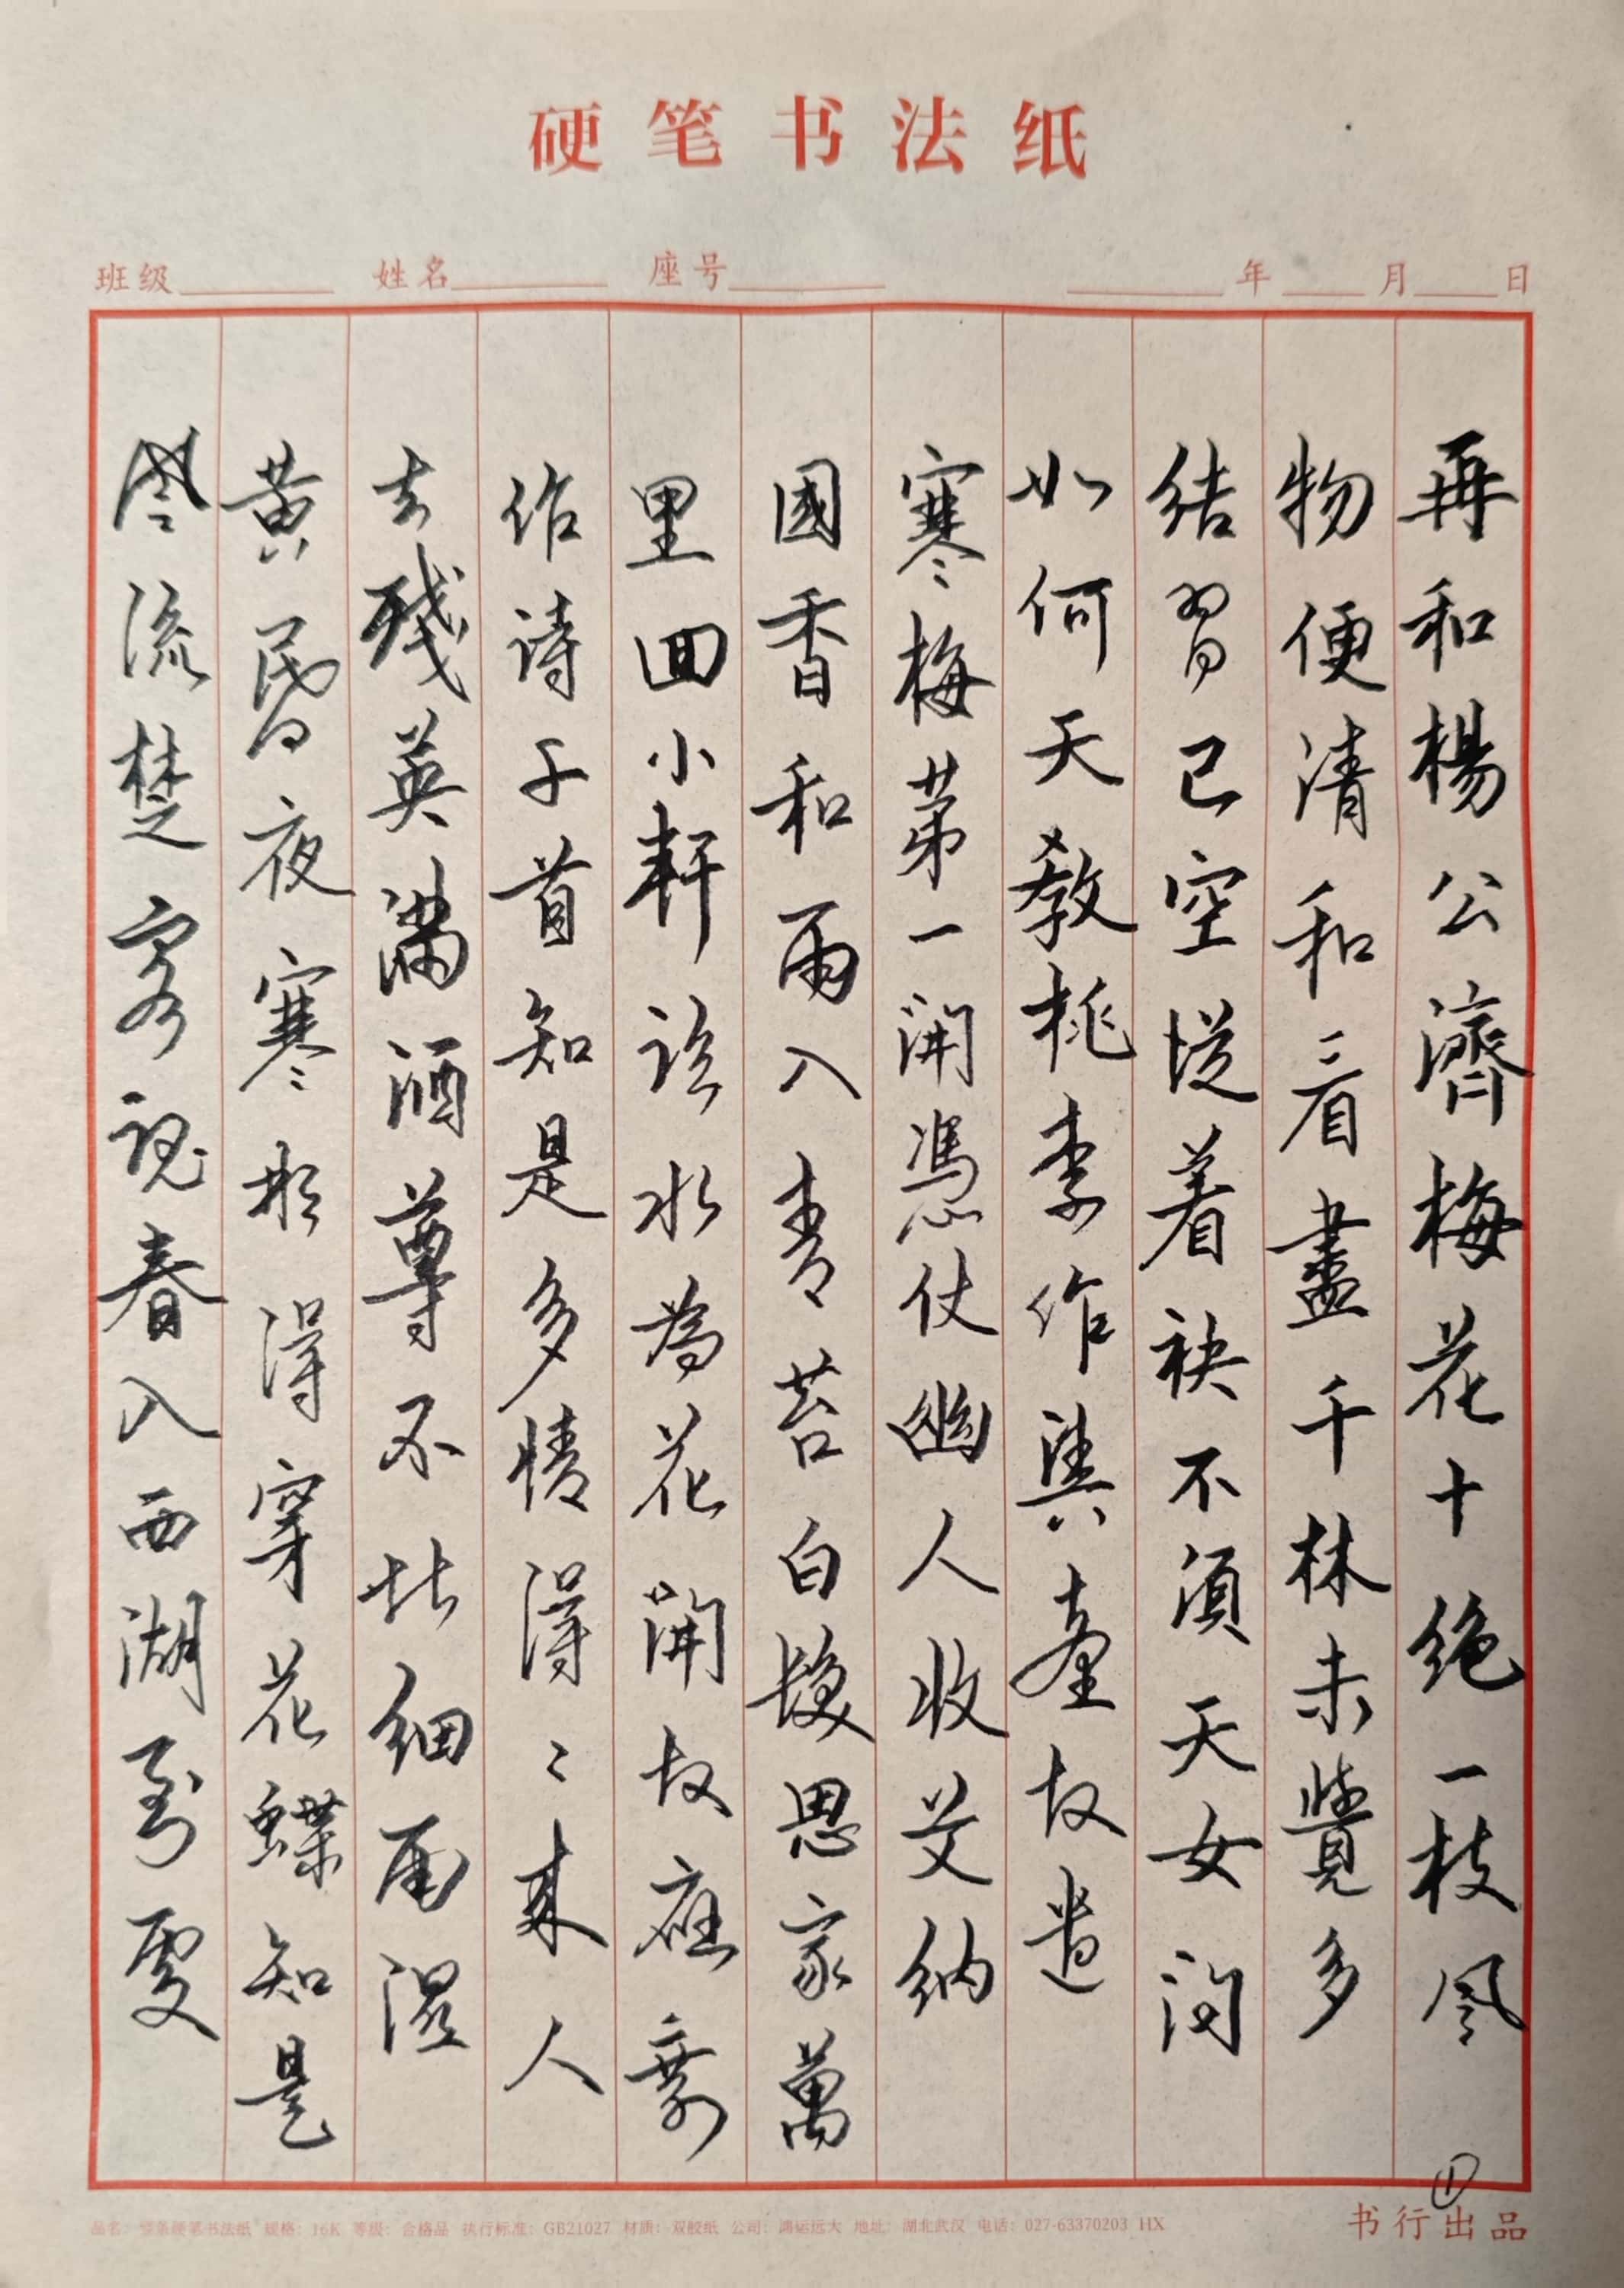 硬笔书法纸
班级 姓名 座号 年 月 日
再和楊公濟梅花十絕一枝風
物便清和看盡千林未覺多
結習已空從着袂不須天女問
如何天教桃李作輿臺故遣
寒梅第一開憑仗幽人收艾納
國香和雨入青苔白髮思家萬
里回小軒臨水為花開故應剩
作詩千首知是多情得〻來人
去殘英滿酒尊不堪細雨濕
黄昏夜寒那得穿花蝶知是
風流楚客魂春入西湖到處
①
书行出品
品名：竖条硬笔书法纸 规格：16K 等级：合格品 执行标准：GB21027 材质：双胶纸 公司：鸿运远大 地址：湖北武汉 电话：027-63370203 HX